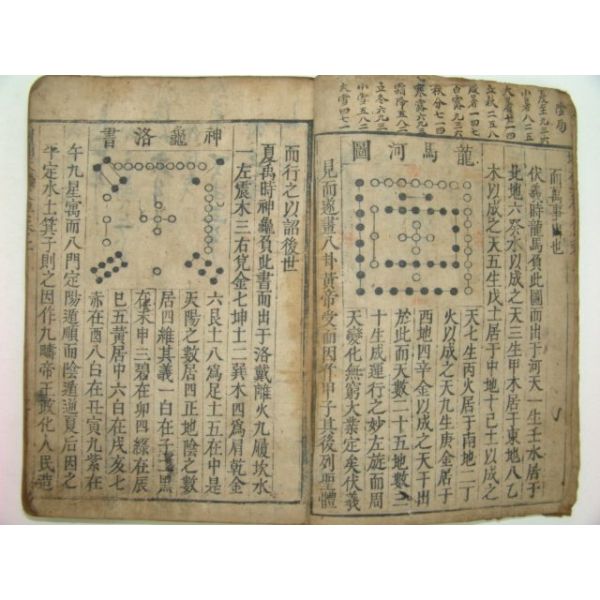 陰局
夏至九三六
小暑八二五
大暑七一四
立秋二五八
處暑一四七
白露九三六
秋分七一四
寒露六九三
霜降五八二
立冬六九三
小雪五八二
大雪四七一
而萬事出也
伏羲時龍馬負此圖而出于河天一生壬水居于
北地六癸水以成之天三生甲木居于東地八乙
木以成之天五生戊土居于中地十己土以成之
龍馬河圖
天七生丙火居于南地二丁
火以成之天九生庚金居于
西地四辛金以成之天干出
於此而天數二十五地數三
十生成運行之妙左旋而周
天變化無窮大業定矣伏羲
見而遂畫八卦黃帝受而因作甲子其後列聖體
而行之以詔後世
夏禹時神龜負此書而出于洛戴離火九履坎水
一左震木三右兌金七坤土二巽木四為肩乾金
神龜洛書
六艮土八為足土五在中是
天陽之數居四正地陰之數
居四維其義一白在子二黑
在未申三碧在卯四綠在辰
巳五黃居中六白在戌亥七
赤在酉八白在丑寅九紫在
午九星寓而八門定陽遁順而陰遁逆夏后因之
平定水土箕子則之因作九疇帝王敎化人民造